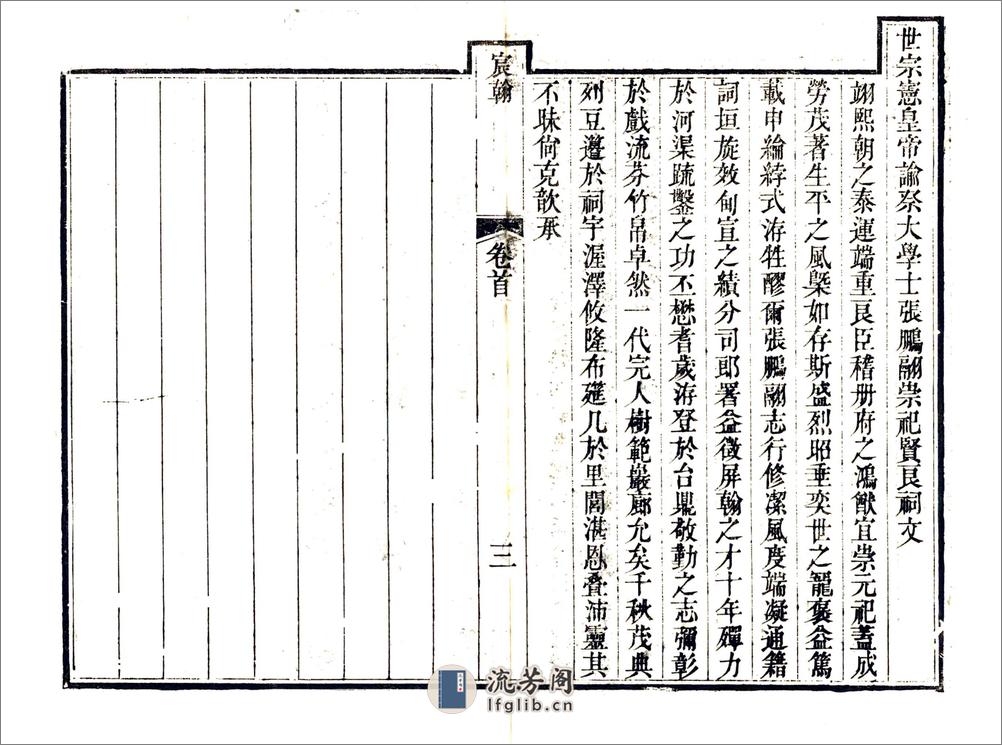 世宗憲皇帝諭祭大學士張鵬翮崇祀賢良祠文
翊熙朝之泰運端重良臣稽册府之鴻猷宜崇元祀蓋成
勞茂著生平之風槩如存斯盛烈昭垂奕世之寵褒益篤
載申綸綍式洊牲醪爾張鵬翮志行修潔風度端凝通籍
詞垣旋效旬宣之績分司郎署益徵屏翰之才十年殫力
於河渠疏鑿之功丕懋耆歲洊登於台鼎敬勤之志彌彰
於戲流芬竹帛卓然一代完人樹範巖廊允矣千秋茂典
列豆籩於祠宇渥澤攸隆布筵几於里閭湛恩叠沛靈其
不昧尙克歆承
宸翰
卷首
三
流芳阁
lfglib.cn